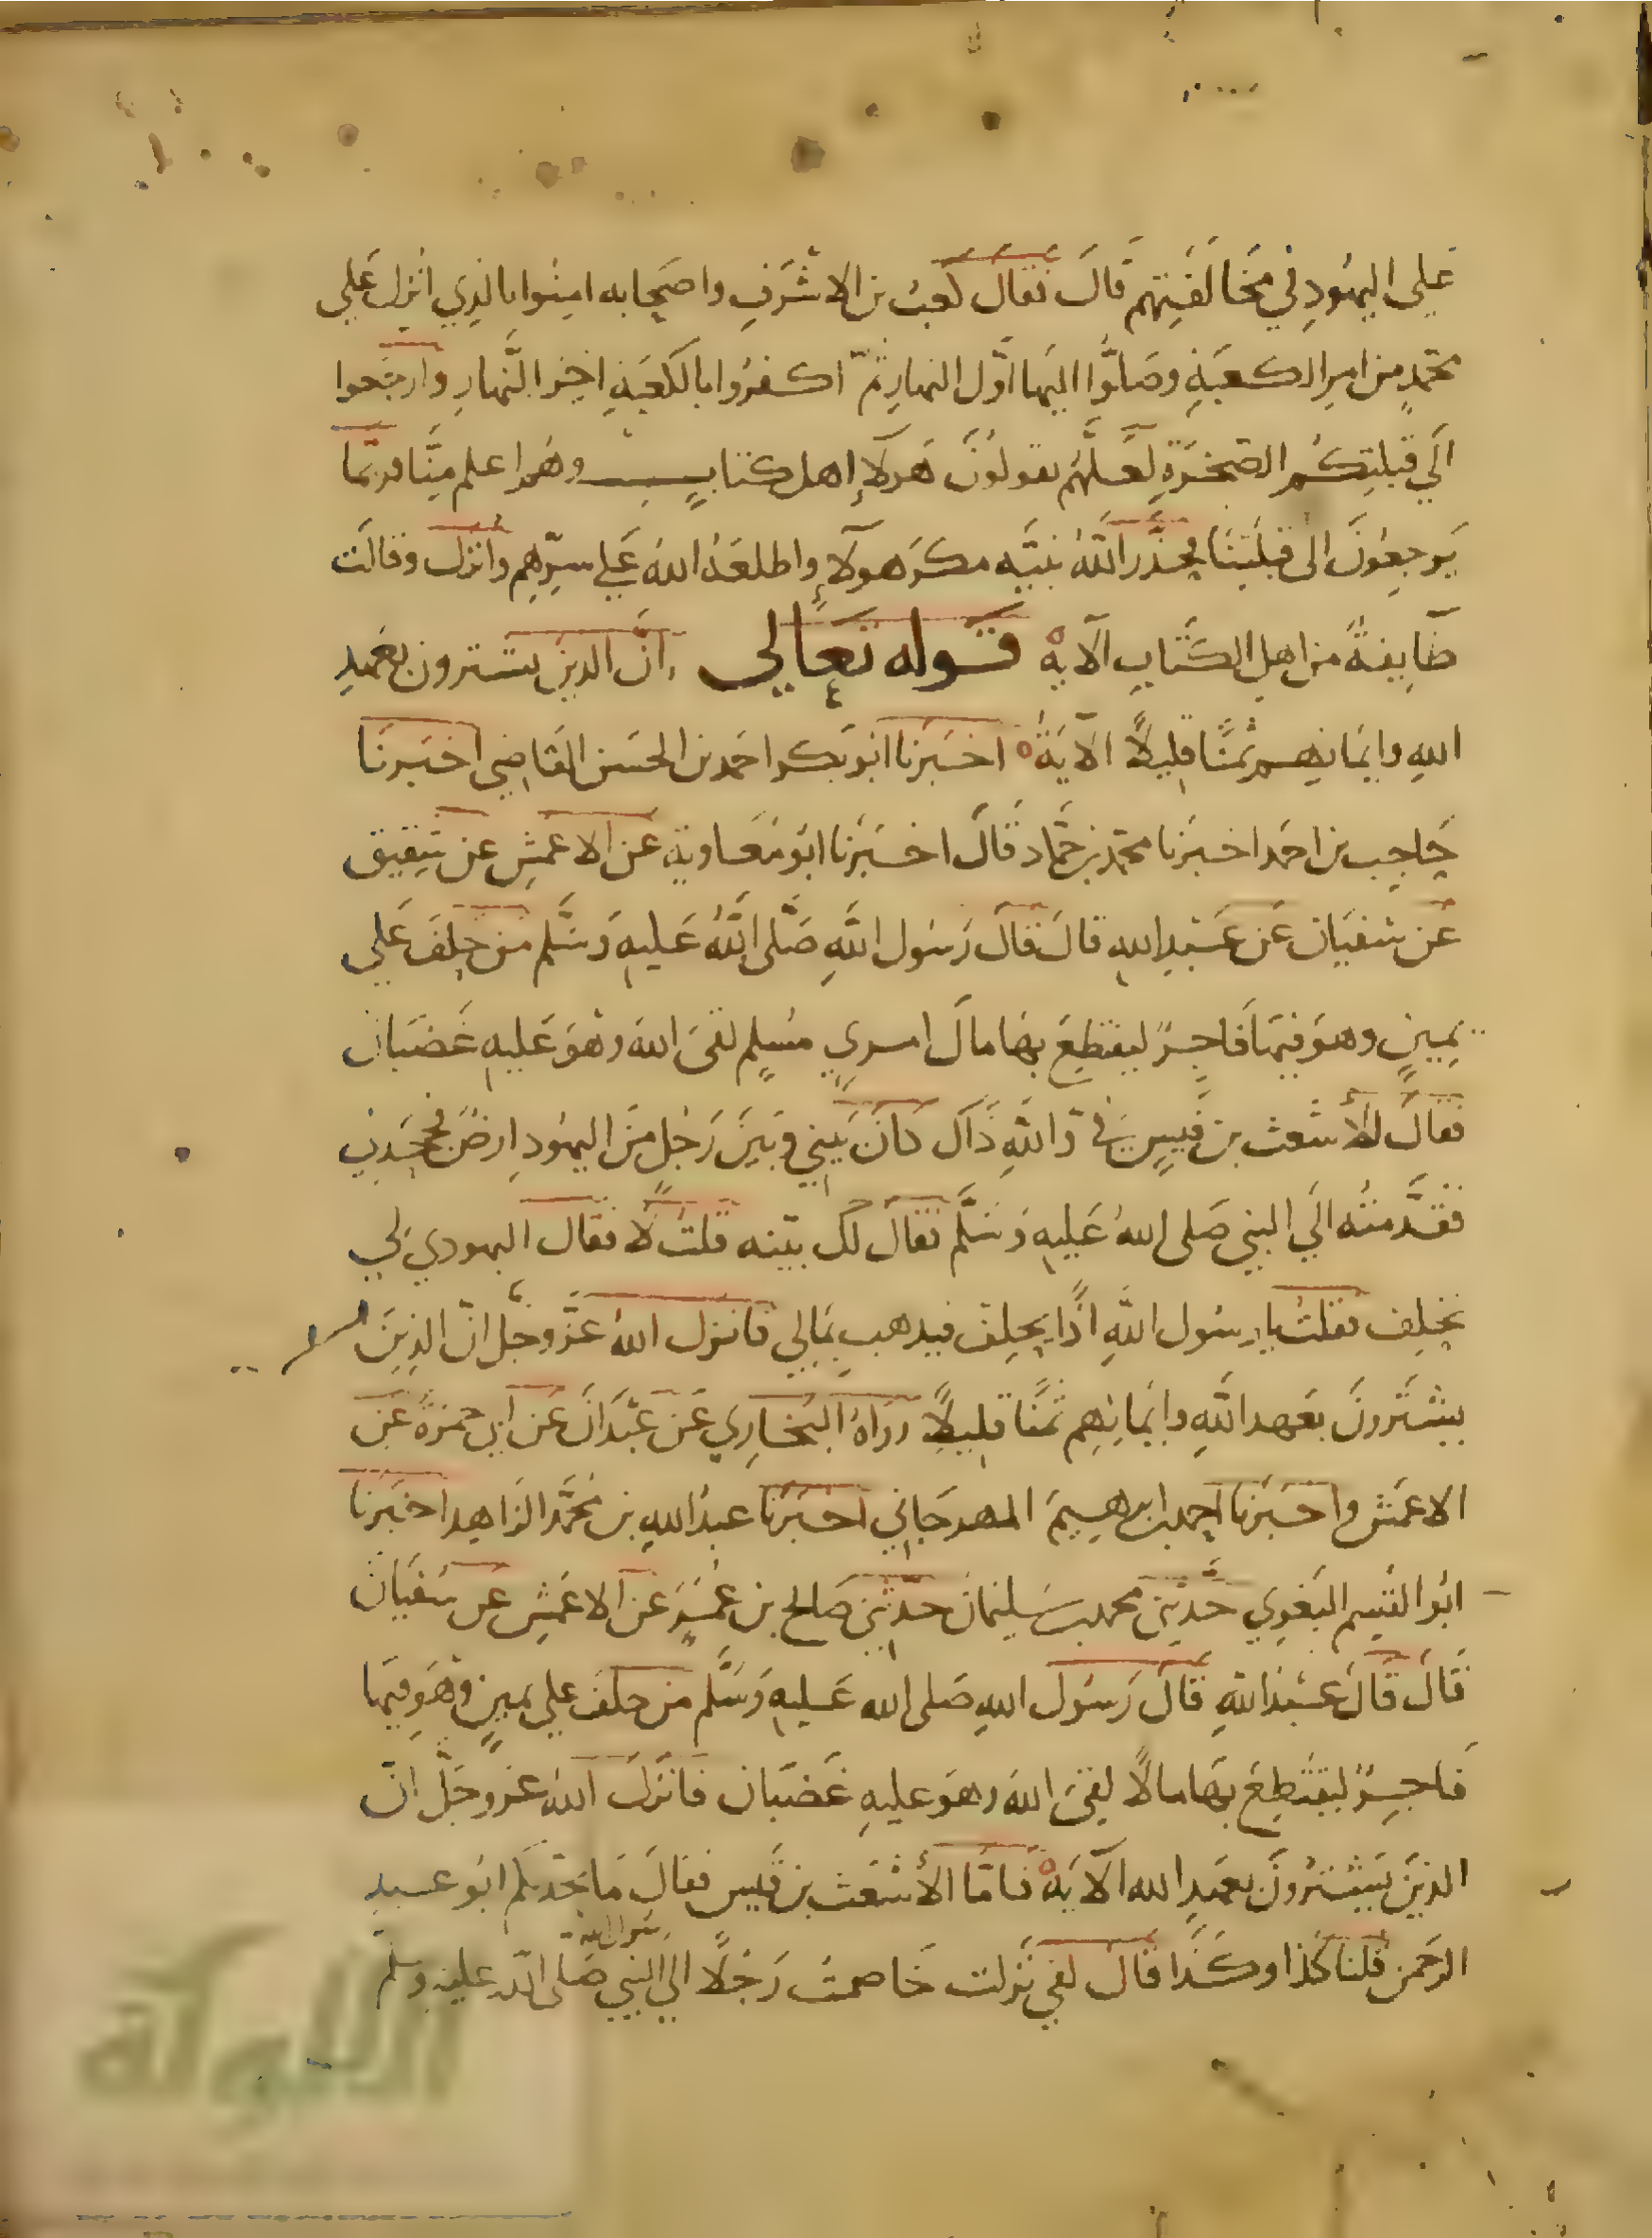 على اليهود في مخالفتهم قال فقال كعب بن الاشرف واصحابه امنوا بالذي انزل على
محمد من امر الكعبة وصلوا اليها اول النهار ثم اكفروا بالكعبة اخر النهار وارجعوا
الي قبلتكم الصخرة لعلهم يقولون هولاء اهل كتاب وهم اعلم منا فربما
يرجعون الى قبلتنا فحذر الله نبيه مكر هولاء واطلعه الله على سرهم وانزل وقالت
طايفة من اهل الكتاب الآية قوله تعالى ان الذين يشترون بعهد
الله وايمانهم ثمنا قليلا الآية اخبرنا ابو بكر احمد بن الحسن القاضي اخبرنا
حاجب بن احمد اخبرنا محمد بن حماد قال اخبرنا ابو معاوية عن الاعمش عن شقيق
عن سفيان عن عبد الله قال قال رسول الله صلى الله عليه وسلم من حلف على
يمين وهو فيها فاجر ليقتطع بها مال امري مسلم لقى الله وهو عليه غضبان
فقال الأشعث بن قيس في والله ذاك كان بيني وبين رجل من اليهود ارض فجحدني
فقدمته الي النبي صلى الله عليه وسلم فقال لك بينه قلت لا فقال اليهودي لي
تحلف فقلت يا رسول الله اذا يحلف فيذهب بمالي فانزل الله عز وجل ان الذين
يشترون بعهد الله وايمانهم ثمنا قليلا رواه البخاري عن عبدان عن ابي حمزة عن
الاعمش واخبرنا احمد بن ابرهيم المهرجاني اخبرنا عبد الله بن محمد الزاهد اخبرنا
ابو القسم البغوي حدثني محمد بن سليمان حدثني صالح بن عمر عن الاعمش عن سفيان
قال قال عبد الله قال رسول الله صلى الله عليه وسلم من حلف على يمين وهو فيها
فاجر ليقتطع بها مالا لقى الله وهو عليه غضبان فانزل الله عز وجل ان
الذين يشترون بعهد الله الآية فاتا الأشعث بن قيس فقال ما يحدثكم ابو عبد
الرحمن قلنا كذا وكذا قال لفي نزلت خاصمت رجلا الي النبي صلى الله عليه وسلم
رسول الله
الألوكة